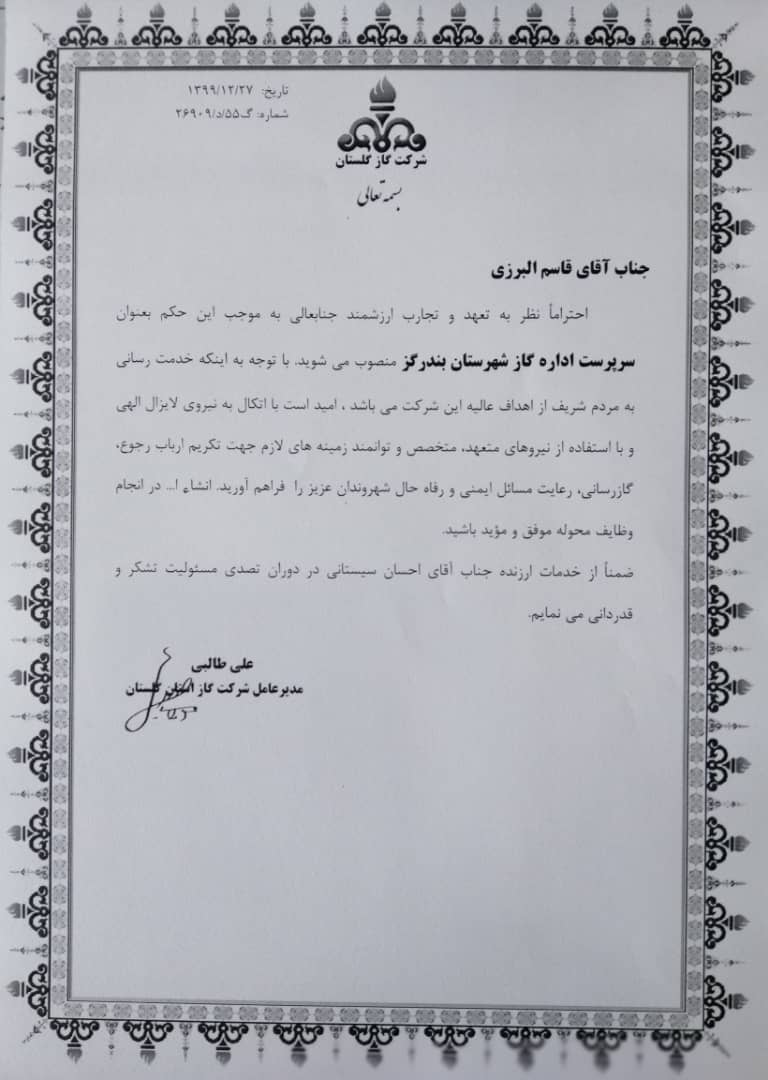 تاریخ: ۱۳۹۹/۱۲/۲۷
شماره: گ۵۵/د/۲۶۹۰۹
شرکت گاز گلستان
بسمه تعالی
جناب آقای قاسم البرزی
احتراماً نظر به تعهد و تجارب ارزشمند جنابعالی به موجب این حکم بعنوان
سرپرست اداره گاز شهرستان بندرگز منصوب می شوید. با توجه به اینکه خدمت رسانی
به مردم شریف از اهداف عالیه این شرکت می باشد ، امید است با اتکال به نیروی لایزال الهی
و با استفاده از نیروهای متعهد، متخصص و توانمند زمینه های لازم جهت تکریم ارباب رجوع،
گازرسانی، رعایت مسائل ایمنی و رفاه حال شهروندان عزیز را فراهم آورید. انشاء ا... در انجام
وظایف محوله موفق و مؤید باشید.
ضمناً از خدمات ارزنده جناب آقای احسان سیستانی در دوران تصدی مسئولیت تشکر و
قدردانی می نمایم.
علی طالبی
مدیرعامل شرکت گاز استان گلستان